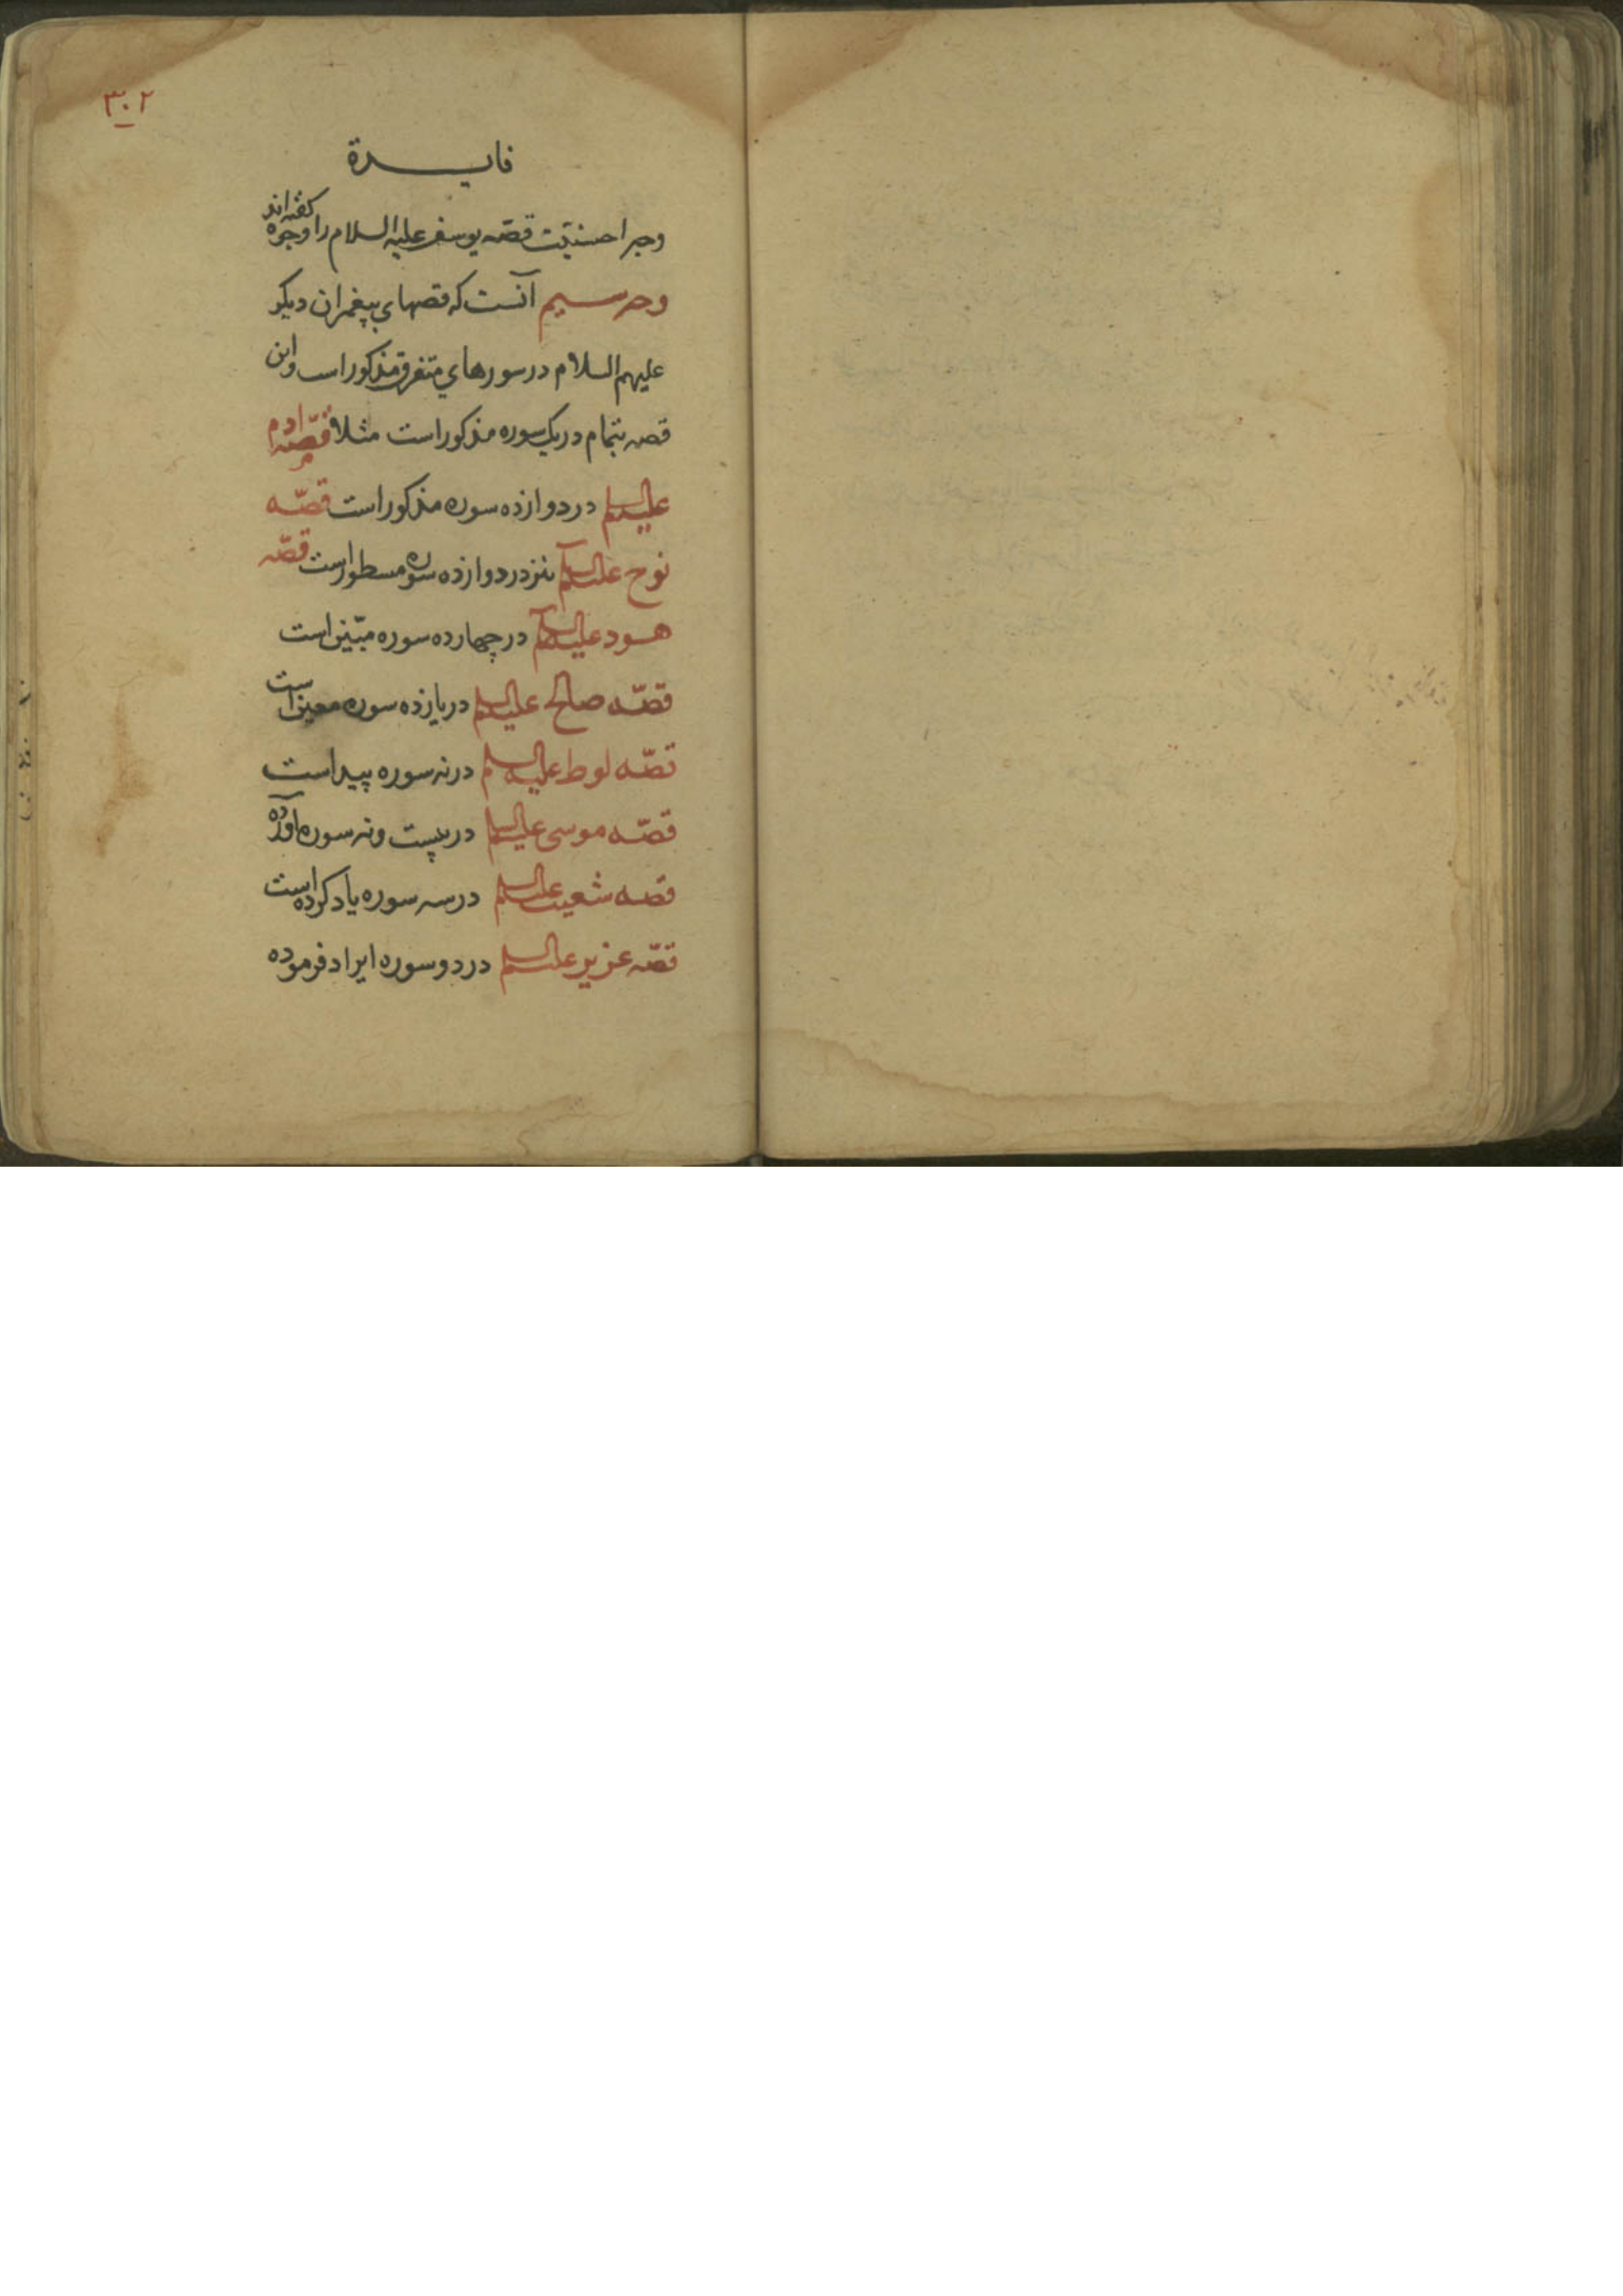 ۳۰۲
فایدة
وجه احسنیّت قصّه یوسف علیه السلام را وجوه کفته اند
وجه سیم آنست که قصهای پیغمبران دیکر
علیهم السلام در سورهای متفرق مذکور است و این
قصه بتمام در یک سوره مذکور است مثلا قصّه ادم
علیه السلم در دوازده سوره مذکور است قصّه
نوح علیه السلم نیز در دوازده سوره مسطور است قصّه
هود علیه السلم در چهارده سوره مبیّن است
قصّه صالح علیه السلم در یازده سوره معین است
قصّه لوط علیه السلم در نه سوره پیداست
قصّه موسی علیه السلم در بیست و نه سوره آورده
قصه شعیب علیه السلم در سه سوره یاد کرده است
قصّه عزیر علیه السلم در دو سوره ایراد فرموده